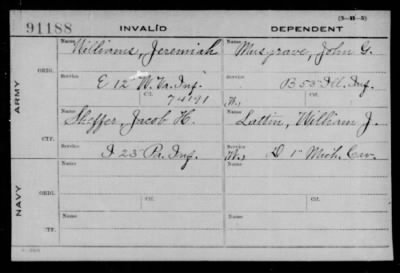 (3-H-5)
91188 INVALID DEPENDENT
Name Williams, Jeremiah Name Musgrave, John G.
ARMY
ORIG. Service E 12 W. Va. Inf. Service B 55 Ill. Inf.
Ctf. 74191 W. Ctf.
Name Sheffer, Jacob H. Name Lattin, William J.
CTF. Service I 23" Pa. Inf. Service W. D 1" Mich. Cav.
Name Name
NAVY
ORIG. Service Service
Ctf. Ctf.
Name Name
CTF.
Service Service